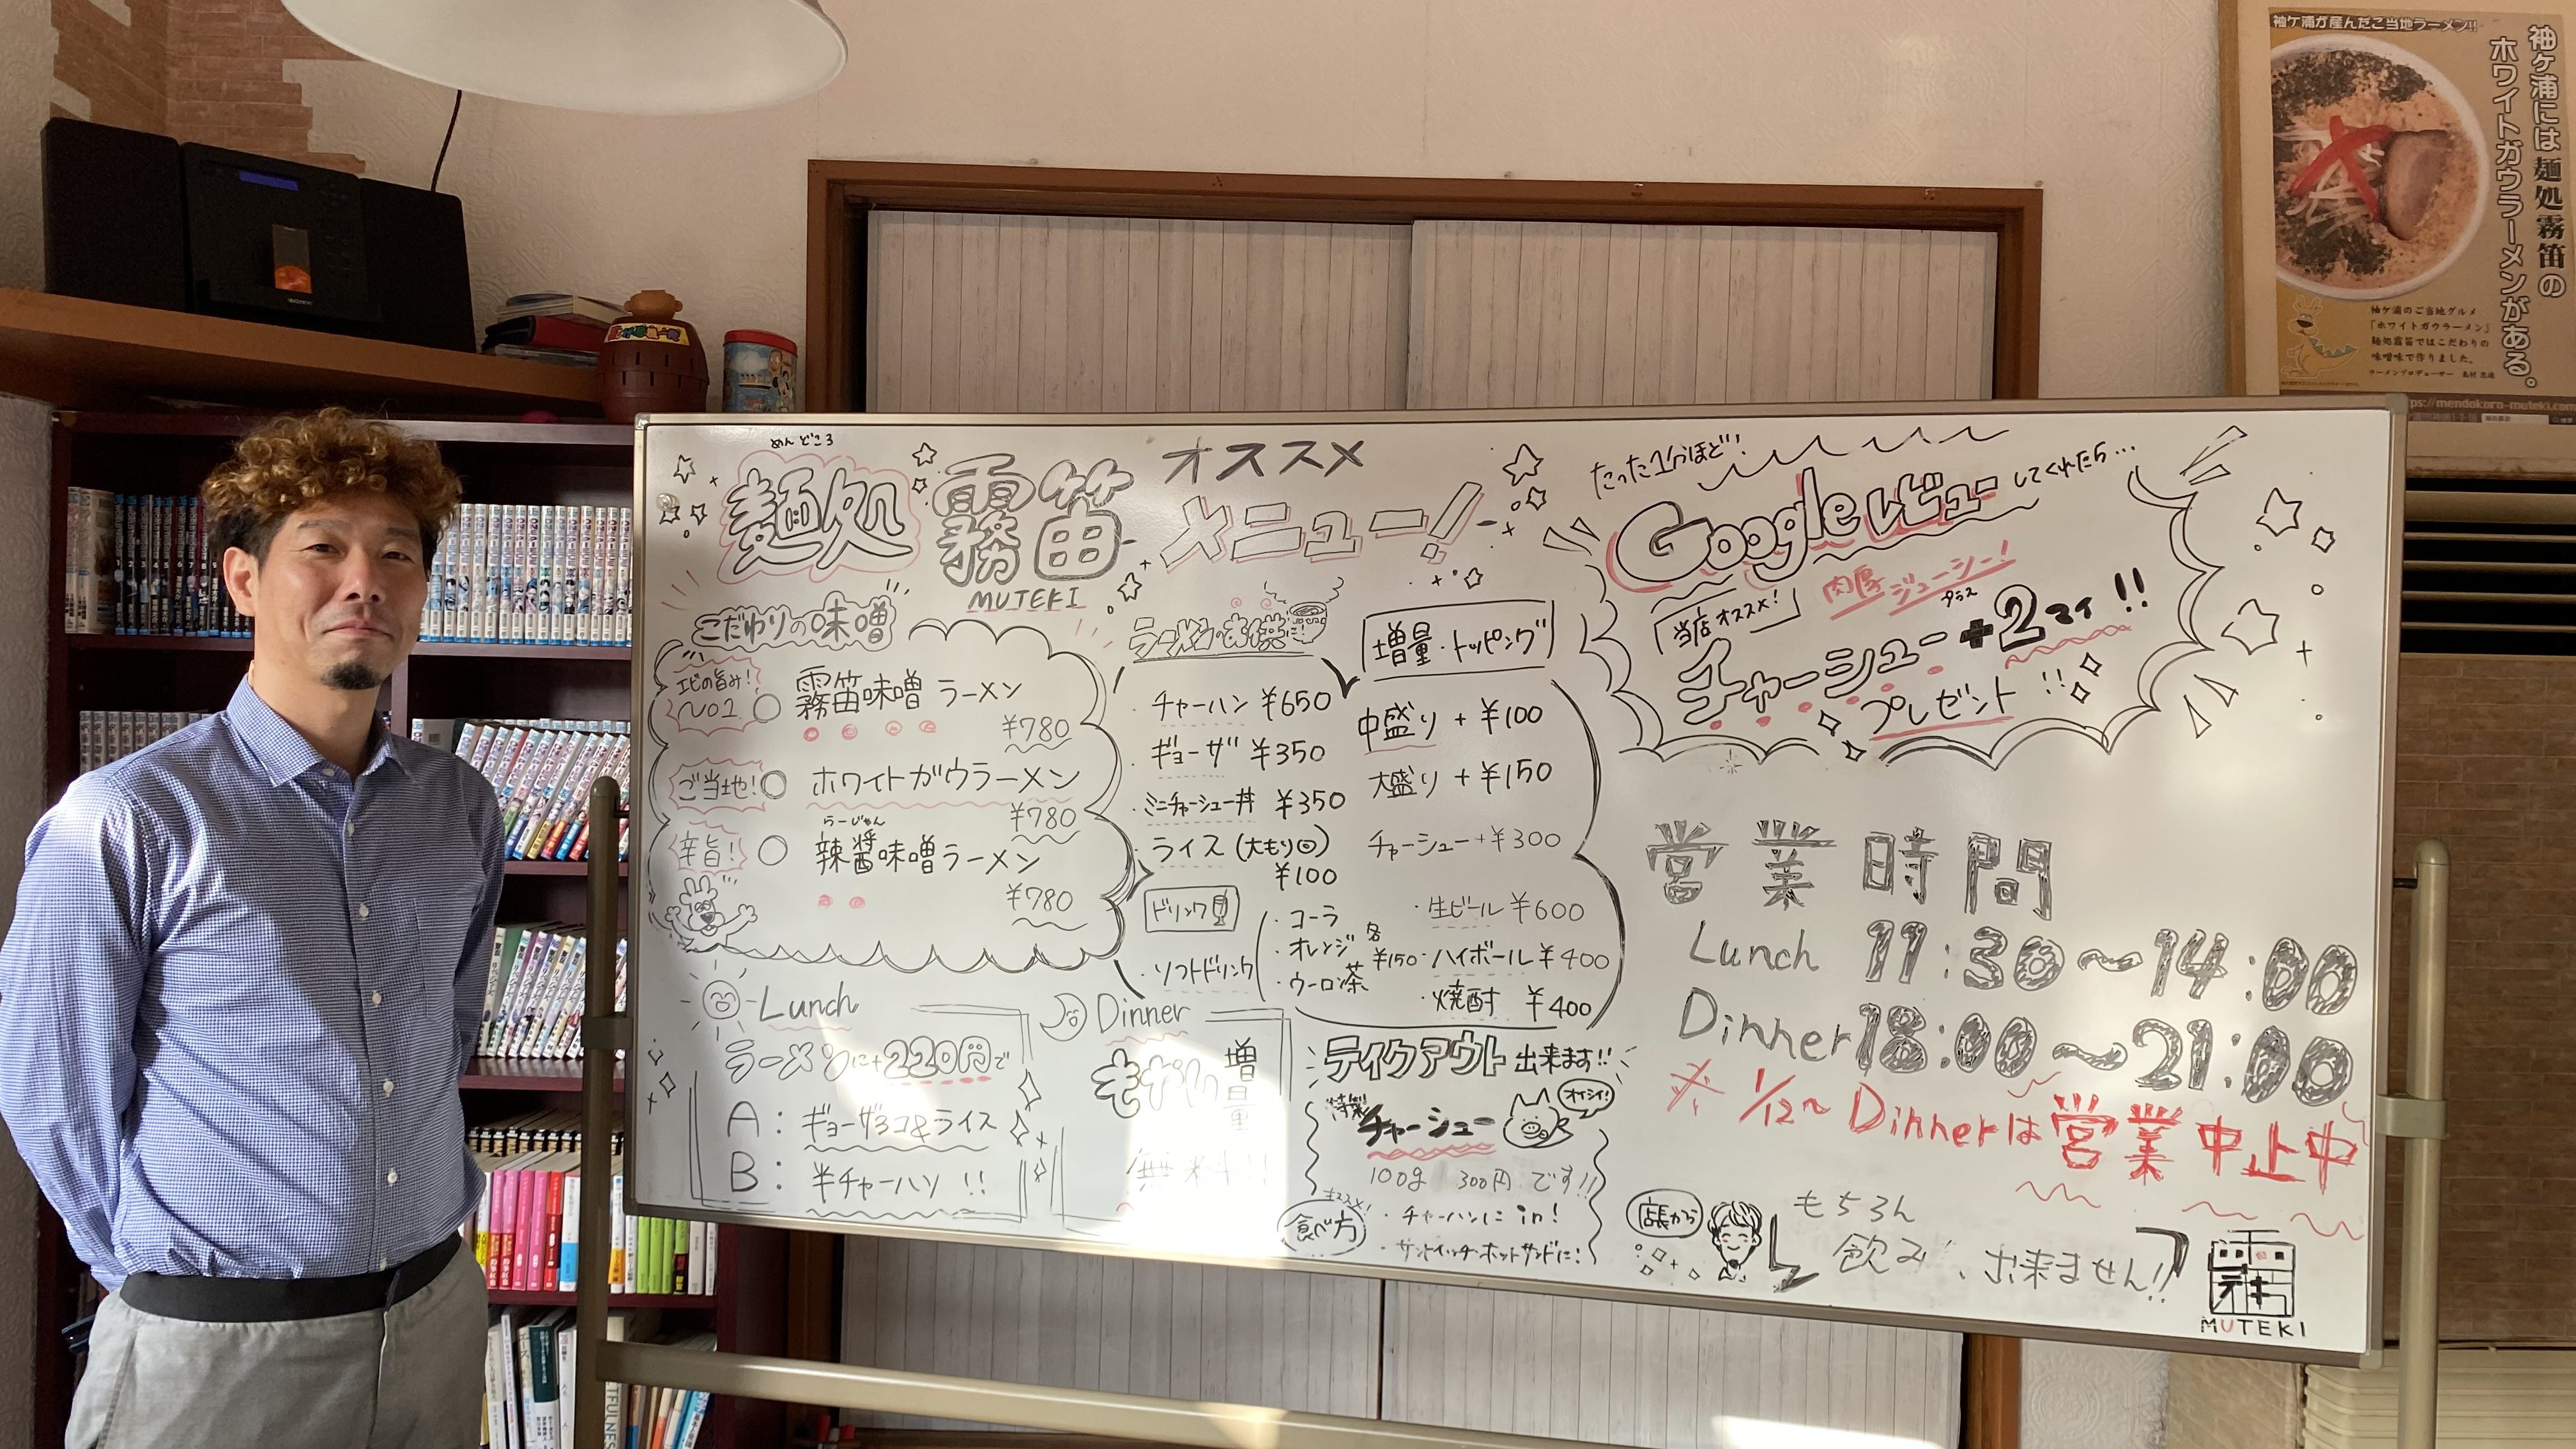 めんどころ
麺処 霧笛
MUTEKI
オススメ
メニュー!
こだわりの味噌
エビの旨み!
No1
霧笛味噌ラーメン
¥780
ご当地!
ホワイトガウラーメン
¥780
辛旨!
らーじゃん
辣醤味噌ラーメン
¥780
ラーメンのお供に!
・チャーハン ¥650
・ギョーザ ¥350
・ミニチャーシュー丼 ¥350
・ライス(大もり回)
¥100
ドリンク
・ソフトドリンク
・コーラ
・オレンジ
・ウーロン茶
各
¥150
増量・トッピング
中盛り +¥100
大盛り +¥150
チャーシュー +¥300
・生ビール ¥600
・ハイボール ¥400
・焼酎 ¥400
Lunch
ラーメンに+220円で
A:ギョーザ3コ&ライス
B:半チャーハン!!
Dinner
増量
無料!!
テイクアウト出来ます!!
特製
チャーシュー
オイシイ!
100g 300円です!!
オススメ!
食べ方
・チャーハンに in!
・サンドイッチ・ホットサンドに!
たった1分ほど!
Googleレビューしてくれたら…
当店オススメ!
肉厚ジューシー!
プラス
チャーシュー+2マイ!!
プレゼント!!
営業時間
Lunch 11:30〜14:00
Dinner 18:00〜21:00
※1/12〜Dinnerは営業中止中
店長から
もちろん
飲み、出来ません!!
テキ
MUTEKI
袖ケ浦が産んだご当地ラーメン!!
袖ケ浦には麺処霧笛の
ホワイトガウラーメンがある。
袖ケ浦のご当地グルメ
「ホワイトガウラーメン」
麺処霧笛ではこだわりの
味噌味で作りました。
ラーメンプロデューサー
ps://mendokoro-muteki.com
TFULNES